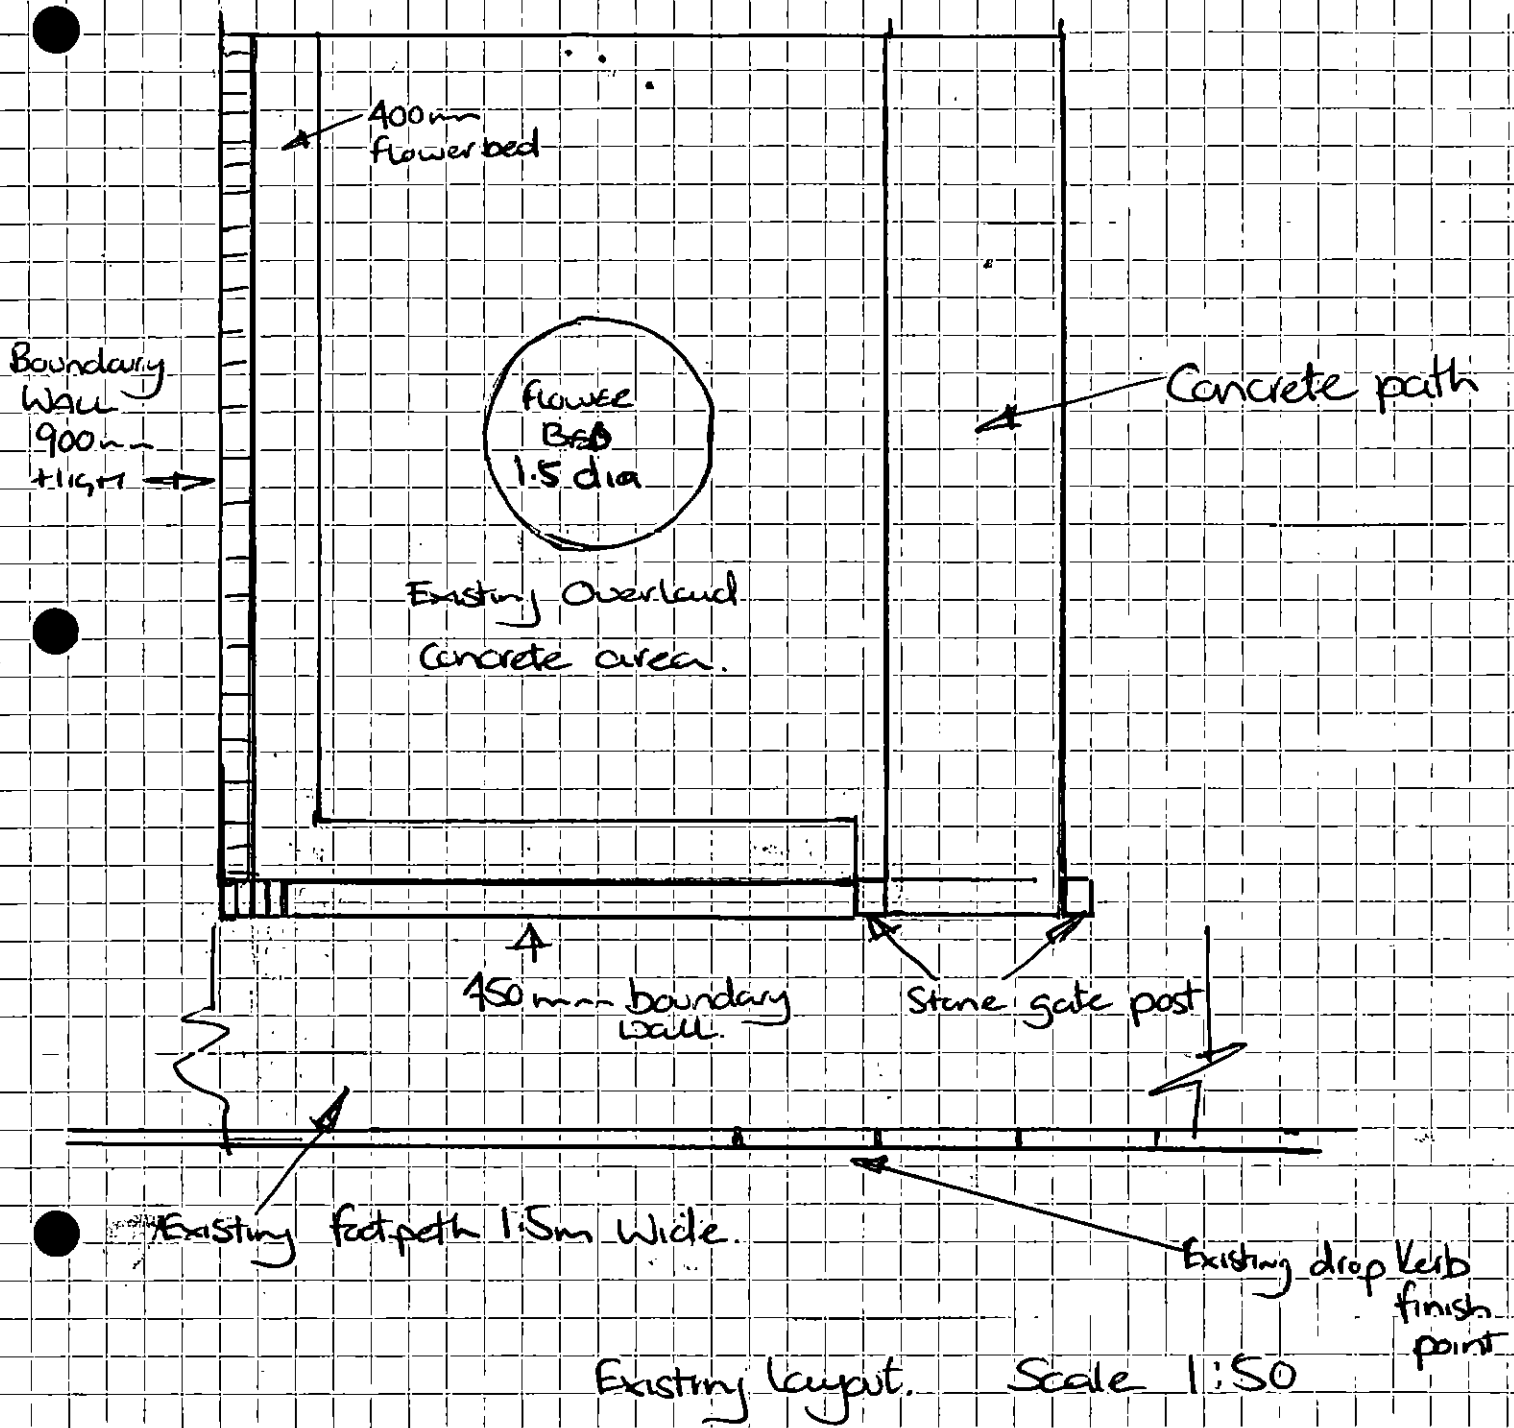 400mm
flowerbed
Boundary
WALL
900mm
HIGH
Concrete path
FLOWER
BED
1.5 dia
Existing Overlaid
Concrete area.
450mm boundary
wall.
Stone gate post
Existing footpath 1.5m Wide.
Existing drop Kerb
finish
point
Existing Layout. Scale 1:50